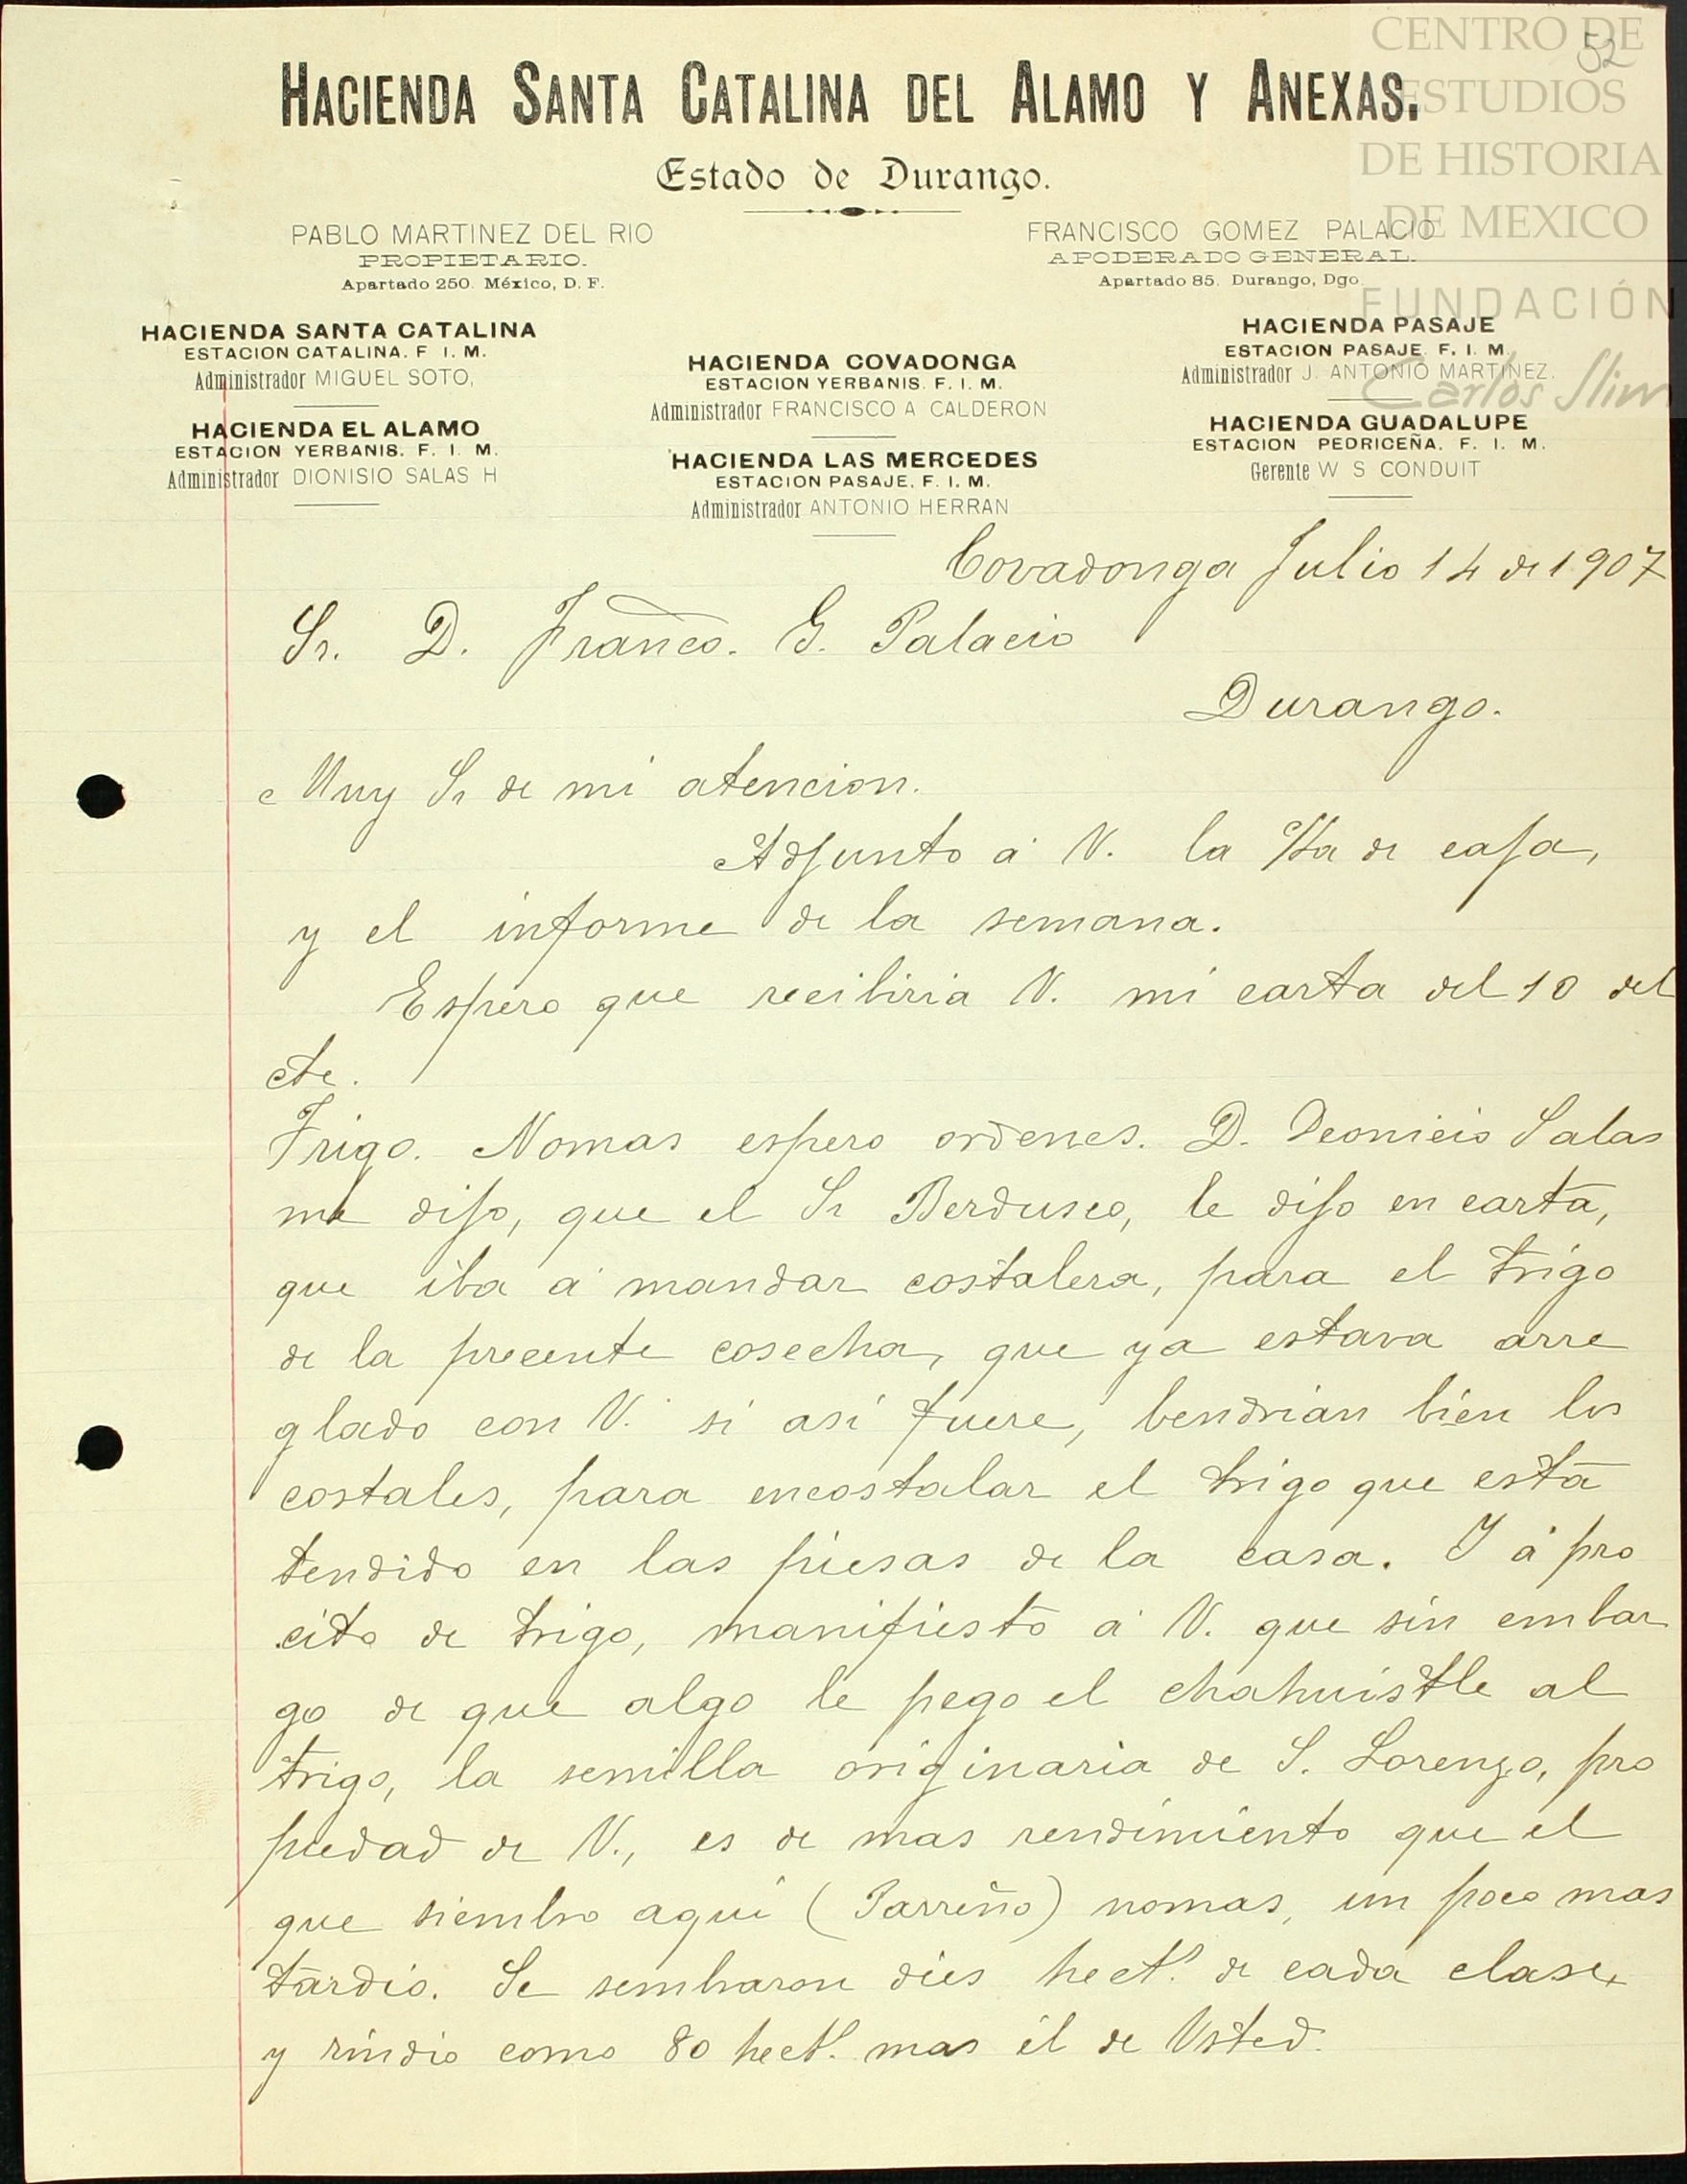 52
CENTRO DE
ESTUDIOS
DE HISTORIA
DE MEXICO
FUNDACIÓN
Carlos Slim
HACIENDA SANTA CATALINA DEL ALAMO Y ANEXAS.
Estado de Durango.
PABLO MARTINEZ DEL RIO
PROPIETARIO.
Apartado 250. México, D. F.
FRANCISCO GOMEZ PALACIO
APODERADO GENERAL.
Apartado 85. Durango, Dgo.
HACIENDA SANTA CATALINA
ESTACION CATALINA. F. I. M.
Administrador MIGUEL SOTO.
HACIENDA EL ALAMO
ESTACION YERBANIS. F. I. M.
Administrador DIONISIO SALAS H
HACIENDA COVADONGA
ESTACION YERBANIS. F. I. M.
Administrador FRANCISCO A CALDERON
HACIENDA LAS MERCEDES
ESTACION PASAJE. F. I. M.
Administrador ANTONIO HERRAN
HACIENDA PASAJE
ESTACION PASAJE. F. I. M.
Administrador J. ANTONIO MARTINEZ.
HACIENDA GUADALUPE
ESTACION PEDRICEÑA. F. I. M.
Gerente W S CONDUIT
Covadonga Julio 14 de 1907
Sr. D. Franco. G. Palacio
Durango.
Muy Sr de mi atencion.
Adjunto á V. la de caja,
y el informe de la semana.
Espero que recibiria V. mi carta del 10 del
cte.
Trigo. Nomas espero ordenes. D. Deonicio Salas
me dijo, que el Sr Berdusco, le dijo en carta,
que iba á mandar costalera, para el trigo
de la precente cosecha, que ya estava arre
glado con V. si así fuere, bendrian bien los
costales, para encostalar el trigo que está
tendido en las piesas de la casa. Y á pro
cito de trigo, manifiesto á V. que sin embar
go de que algo le pego el chahuistle al
trigo, la semilla originaria de S. Lorenzo, pro
piedad de V., es de mas rendimiento que el
que siembro aquí (Parreño) nomas, un poco mas
tardio. Se sembraron dies hect.s de cada clase,
y rindio como 80 hect.s mas el de Usted.